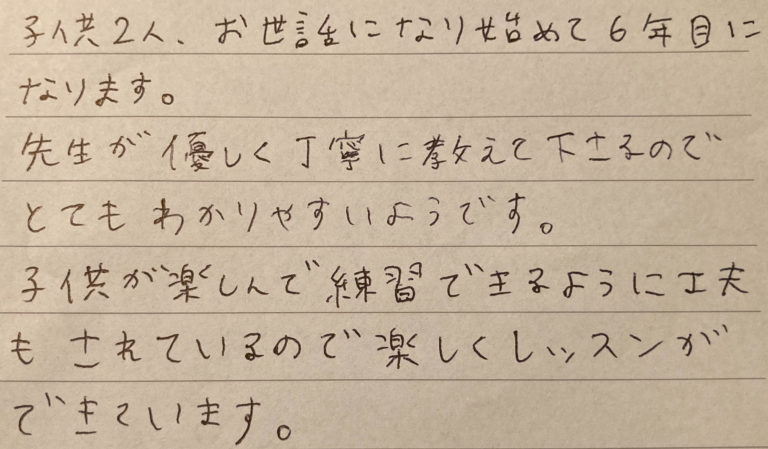 子供2人、お世話になり始めて6年目に
なります。
先生が優しく丁寧に教えて下さるので
とてもわかりやすいようです。
子供が楽しんで練習できるように工夫
もされているので楽しくレッスンが
できています。